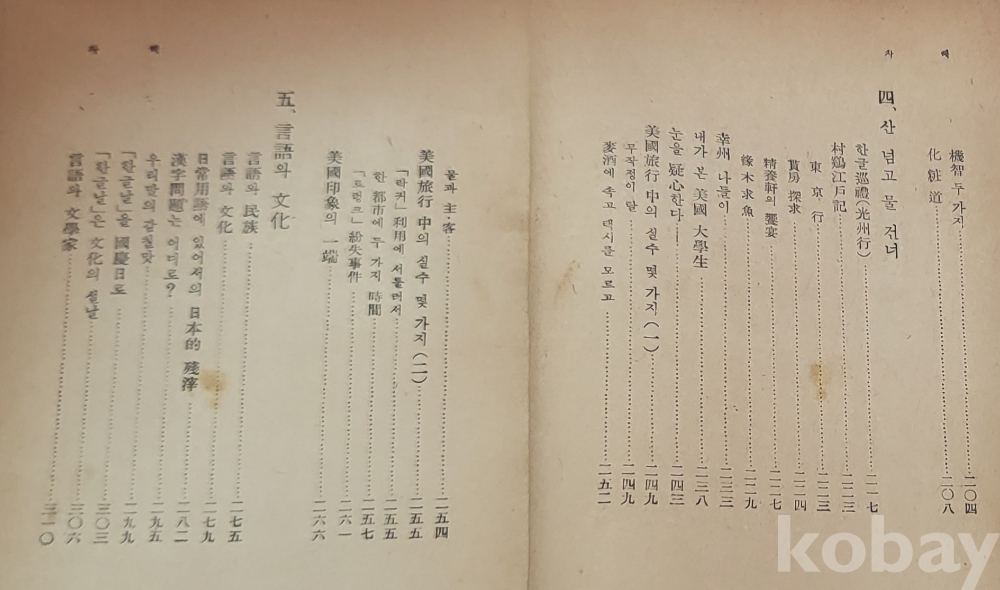 차 례
機智 두 가지 二〇四
化粧道 二〇八
四、산 넘고 물 건너
한글巡禮(光州行) 二一七
村鷄江戶記 二二三
東京行 二二三
貰房探求 二二四
精養軒의 饗宴 二二七
緣木求魚 二二九
幸州 나들이 二三三
내가 본 美國 大學生 二三八
눈을 疑心한다 二四三
美國旅行 中의 실수 몇 가지(一) 二四九
무작정이 탈 二四九
麥酒에 속고 택시를 모르고 二五二
차 례
물과 主·客 二五四
美國旅行 中의 실수 몇 가지(二) 二五五
「락커」利用에 서툴러서 二五五
한 都市에 두 가지 時間 二五七
「트렁크」紛失事件 二六一
美國印象의 一端 二六六
五、言語와 文化
言語와 民族 二七五
言語와 文化 二七九
日常用語에 있어서의 日本的 殘滓 二八二
漢字問題는 어디로? 二九五
우리말의 감칠맛 二九九
「한글날」을 國慶日로 三〇三
「한글날」은 文化의 설날 三〇六
言語와 文學家 三一〇
kobay